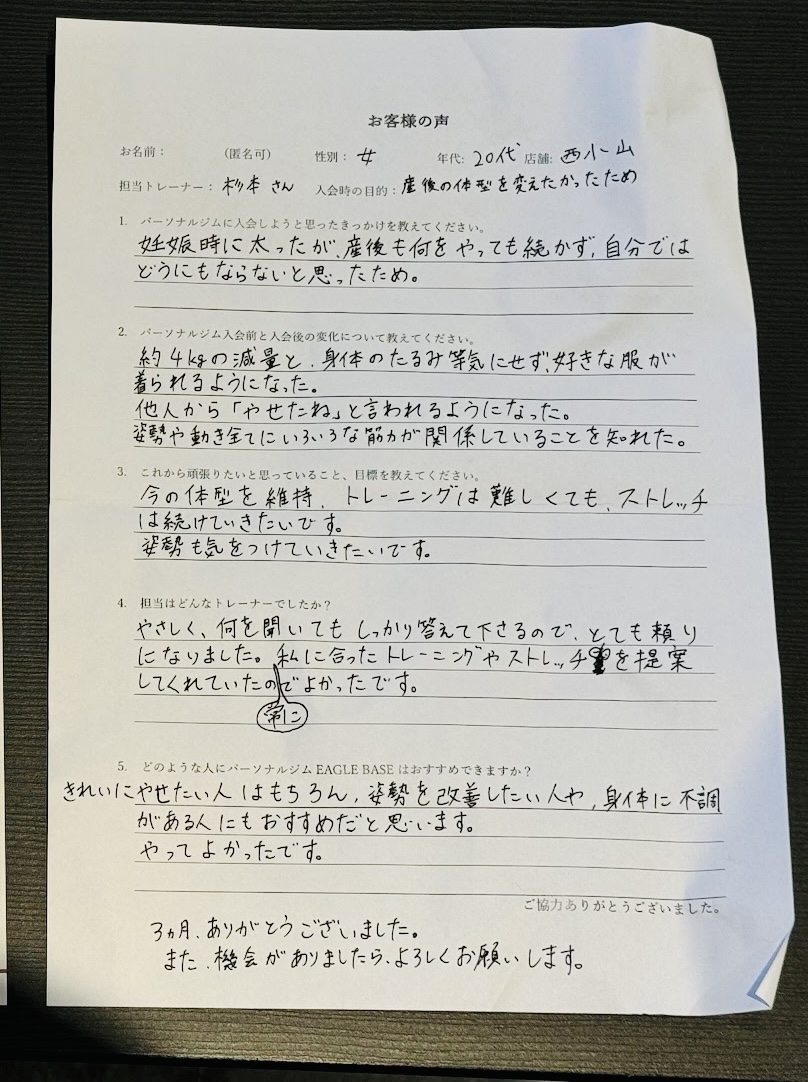 お客様の声
お名前： （匿名可） 性別：女 年代：20代 店舗：西小山
担当トレーナー：杉本さん 入会時の目的：産後の体型を変えたかったため
1. パーソナルジムに入会しようと思ったきっかけを教えてください。
妊娠時に太ったが、産後も何をやっても続かず、自分では
どうにもならないと思ったため。
2. パーソナルジム入会前と入会後の変化について教えてください。
約4kgの減量と、身体のたるみ等気にせず、好きな服が
着られるようになった。
他人から「やせたね」と言われるようになった。
姿勢や動き全てにいろいろな筋力が関係していることを知れた。
3. これから頑張りたいと思っていること、目標を教えてください。
今の体型を維持、トレーニングは難しくても、ストレッチ
は続けていきたいです。
姿勢も気をつけていきたいです。
4. 担当はどんなトレーナーでしたか？
やさしく、何を聞いてもしっかり答えて下さるので、とても頼り
になりました。私に合ったトレーニングやストレッチを提案
してくれていたのでよかったです。
常に
5. どのような人にパーソナルジム EAGLE BASE はおすすめできますか？
きれいにやせたい人はもちろん、姿勢を改善したい人や、身体に不調
がある人にもおすすめだと思います。
やってよかったです。
ご協力ありがとうございました。
3ヵ月、ありがとうございました。
また、機会がありましたら、よろしくお願いします。